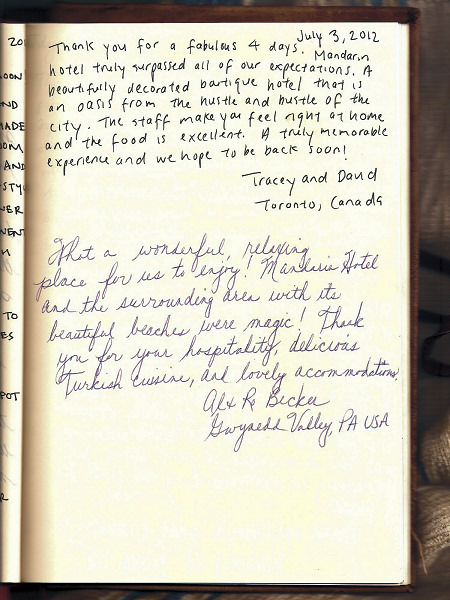 July 3, 2012
Thank you for a fabulous 4 days. Mandarin
hotel truly surpassed all of our expectations. A
beautifully decorated boutique hotel that is
an oasis from the hustle and bustle of the
city. The staff make you feel right at home
and the food is excellent. A truly memorable
experience and we hope to be back soon!
Tracey and David
Toronto, Canada
What a wonderful, relaxing
place for us to enjoy! Mandarin Hotel
and the surrounding area with its
beautiful beaches were magic! Thank
you for your hospitality, delicious
Turkish cuisine, and lovely accommodations.
Becker
Gwynedd Valley, PA USA
20
OON
ND
MADE
OOM
AND
STYL
VER
VENT
M
TO
ES
POT
R